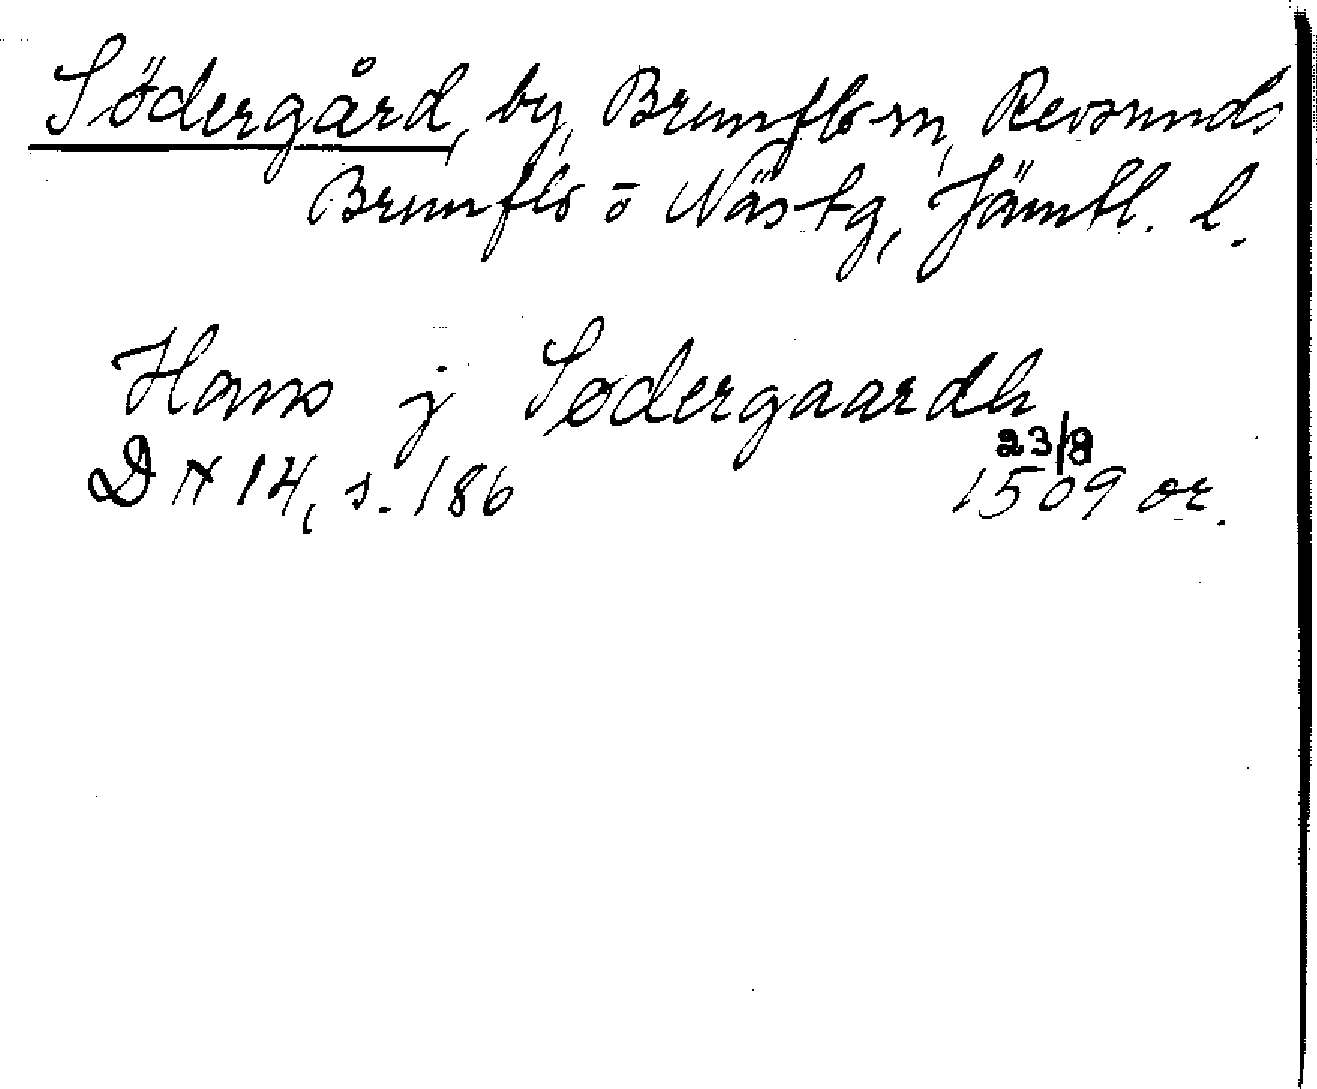 Södergård, by, Brunflo sn, Revsunds
Brunflo o Näs tg, Jämtl. l.
Hans j Sodergaardh
DN 14, s. 186
23/8
1509 or.